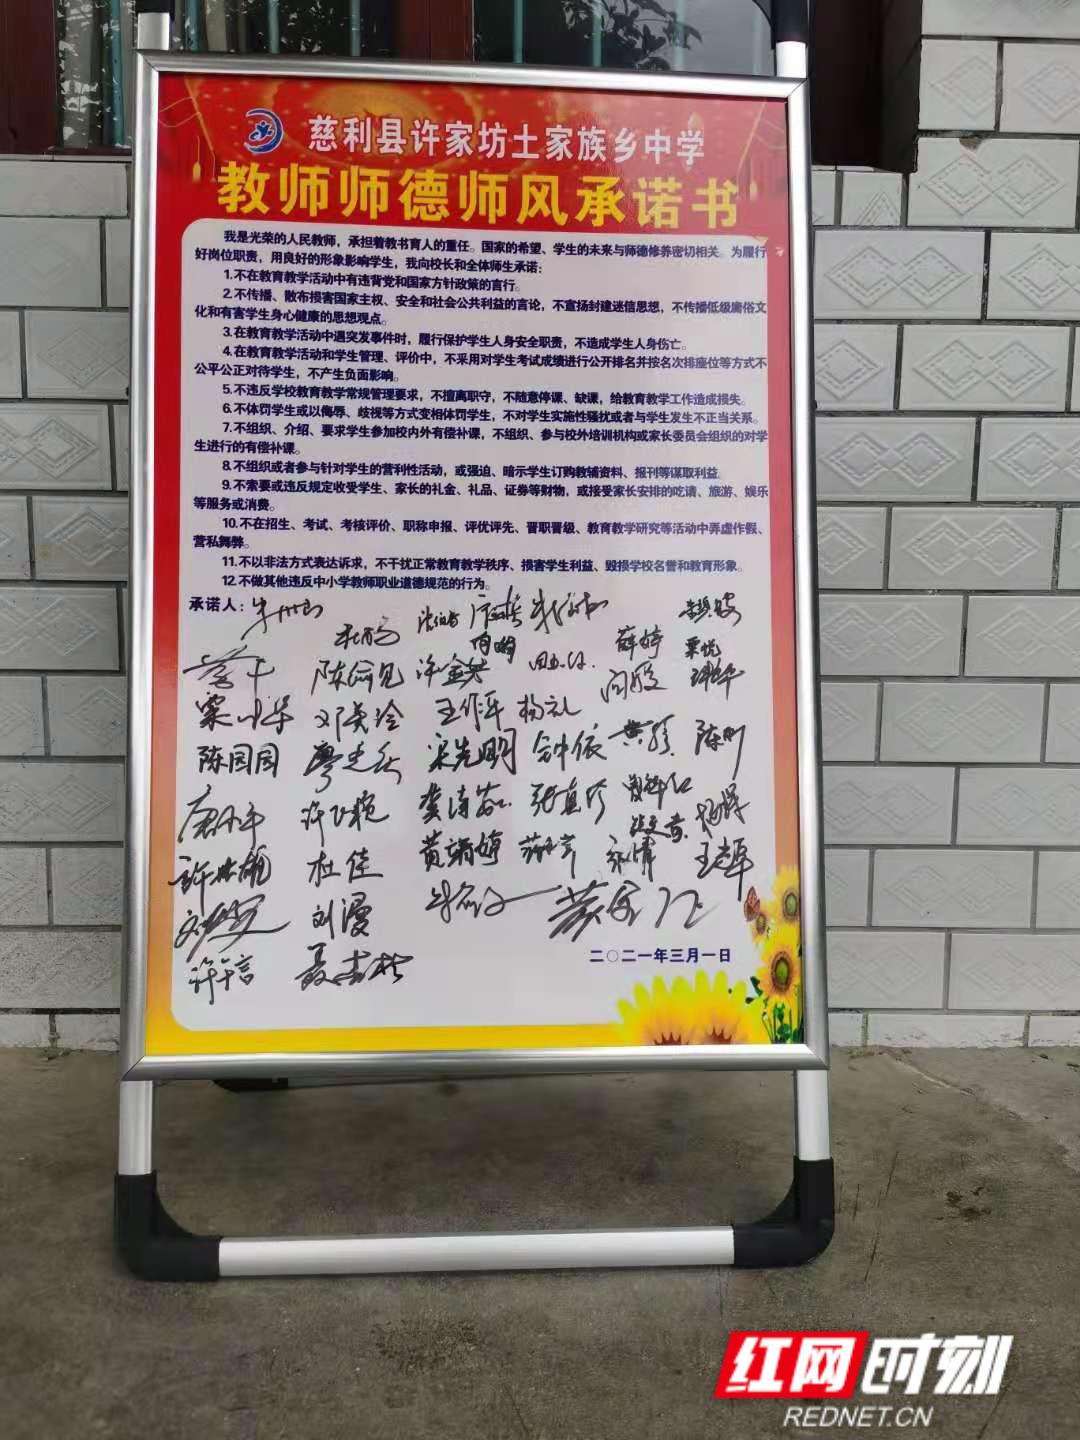 慈利县许家坊土家族乡中学
教师师德师风承诺书
我是光荣的人民教师，承担着教书育人的重任。国家的希望、学生的未来与师德修养密切相关。为履行
好岗位职责，用良好的形象影响学生，我向校长和全体师生承诺：
1.不在教育教学活动中有违背党和国家方针政策的言行。
2.不传播、散布损害国家主权、安全和社会公共利益的言论，不宣扬封建迷信思想，不传播低级庸俗文
化和有害学生身心健康的思想观点。
3.在教育教学活动中遇突发事件时，履行保护学生人身安全职责，不造成学生人身伤亡。
4.在教育教学活动和学生管理、评价中，不采用对学生考试成绩进行公开排名并按名次排座位等方式不
公平公正对待学生，不产生负面影响。
5.不违反学校教育教学常规管理要求，不擅离职守，不随意停课、缺课，给教育教学工作造成损失。
6.不体罚学生或以侮辱、歧视等方式变相体罚学生，不对学生实施性骚扰或者与学生发生不正当关系。
7.不组织、介绍、要求学生参加校内外有偿补课，不组织、参与校外培训机构或家长委员会组织的对学
生进行的有偿补课。
8.不组织或者参与针对学生的营利性活动，或强迫、暗示学生订购教辅资料、报刊等谋取利益。
9.不索要或违反规定收受学生、家长的礼金、礼品、证券等财物，或接受家长安排的吃请、旅游、娱乐
等服务或消费。
10.不在招生、考试、考核评价、职称申报、评优评先、晋职晋级、教育教学研究等活动中弄虚作假、
营私舞弊。
11.不以非法方式表达诉求，不干扰正常教育教学秩序、损害学生利益、毁损学校名誉和教育形象。
12.不做其他违反中小学教师职业道德规范的行为。
承诺人：
薛婷
王作平 杨礼
陈园园 宋先明 钟依
龚诗
黄娟婷
杜佳
刘漫
二〇二一年三月一日
红网时刻
REDNET.CN